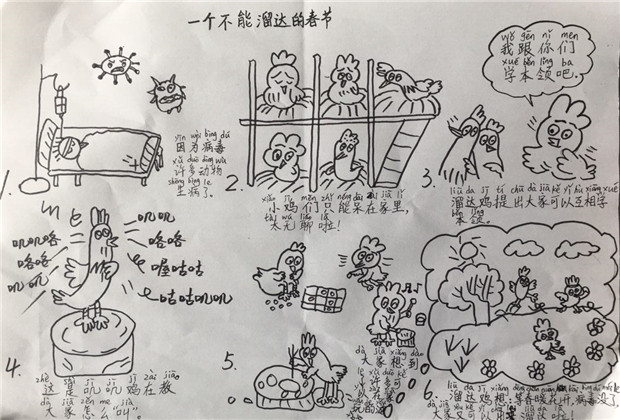 一个不能溜达的春节
yīn wèi bìng dú
因为病毒
xǔ duō dòng wù
许多动物
shēng bìng le
生病了。
1.
xiǎo jī men zhǐ néng dāi zài jiā lǐ
小鸡们只能呆在家里,
tài wú liáo la
太无聊啦!
2.
wǒ gēn nǐ men
我跟你们
xué běn lǐng ba
学本领吧.
liū dá jī tí chū dà jiā kě yǐ hù xiāng xué
溜达鸡提出大家可以互相学
běn lǐng
本领。
3.
叽叽
叽叽咯
咯咯
咯咯
叽叽
喔咕咕
咕咕叽叽
zhè shì jī jī jī zài jiāo
这是叽叽鸡在教
dà jiā zěn me jiào
大家怎么"叫"
4.
dà jiā xiǎng dào
大家想到
许多
5.
溜达鸡想,等春暖花开,病毒没了,
6.